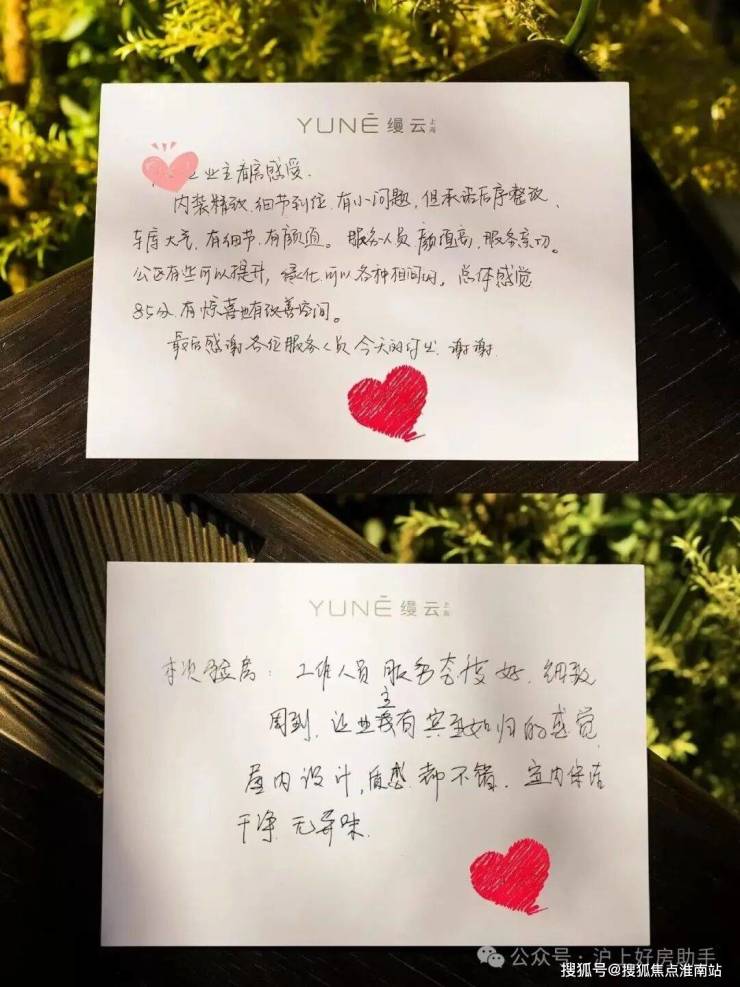 YUNĒ 缦云 上海
业主看房感受.
内装精致.细节到位.有小问题,但承诺后序整改、
车库大气,有细节.有颜值。服务人员颜值高,服务亲切。
公区有些可以提升,绿化可以各种相间的。总体感觉
85分.有惊喜也有改善空间。
最后感谢各位服务人员今天的付出.谢谢.
YUNĒ 缦云 上海
本次验房:工作人员服务态度好.细致
周到.让业主有宾至如归的感觉
屋内设计,质感都不错.室内保洁
干净无异味.
公众号·沪上好房助手
搜狐号@搜狐焦点淮南站